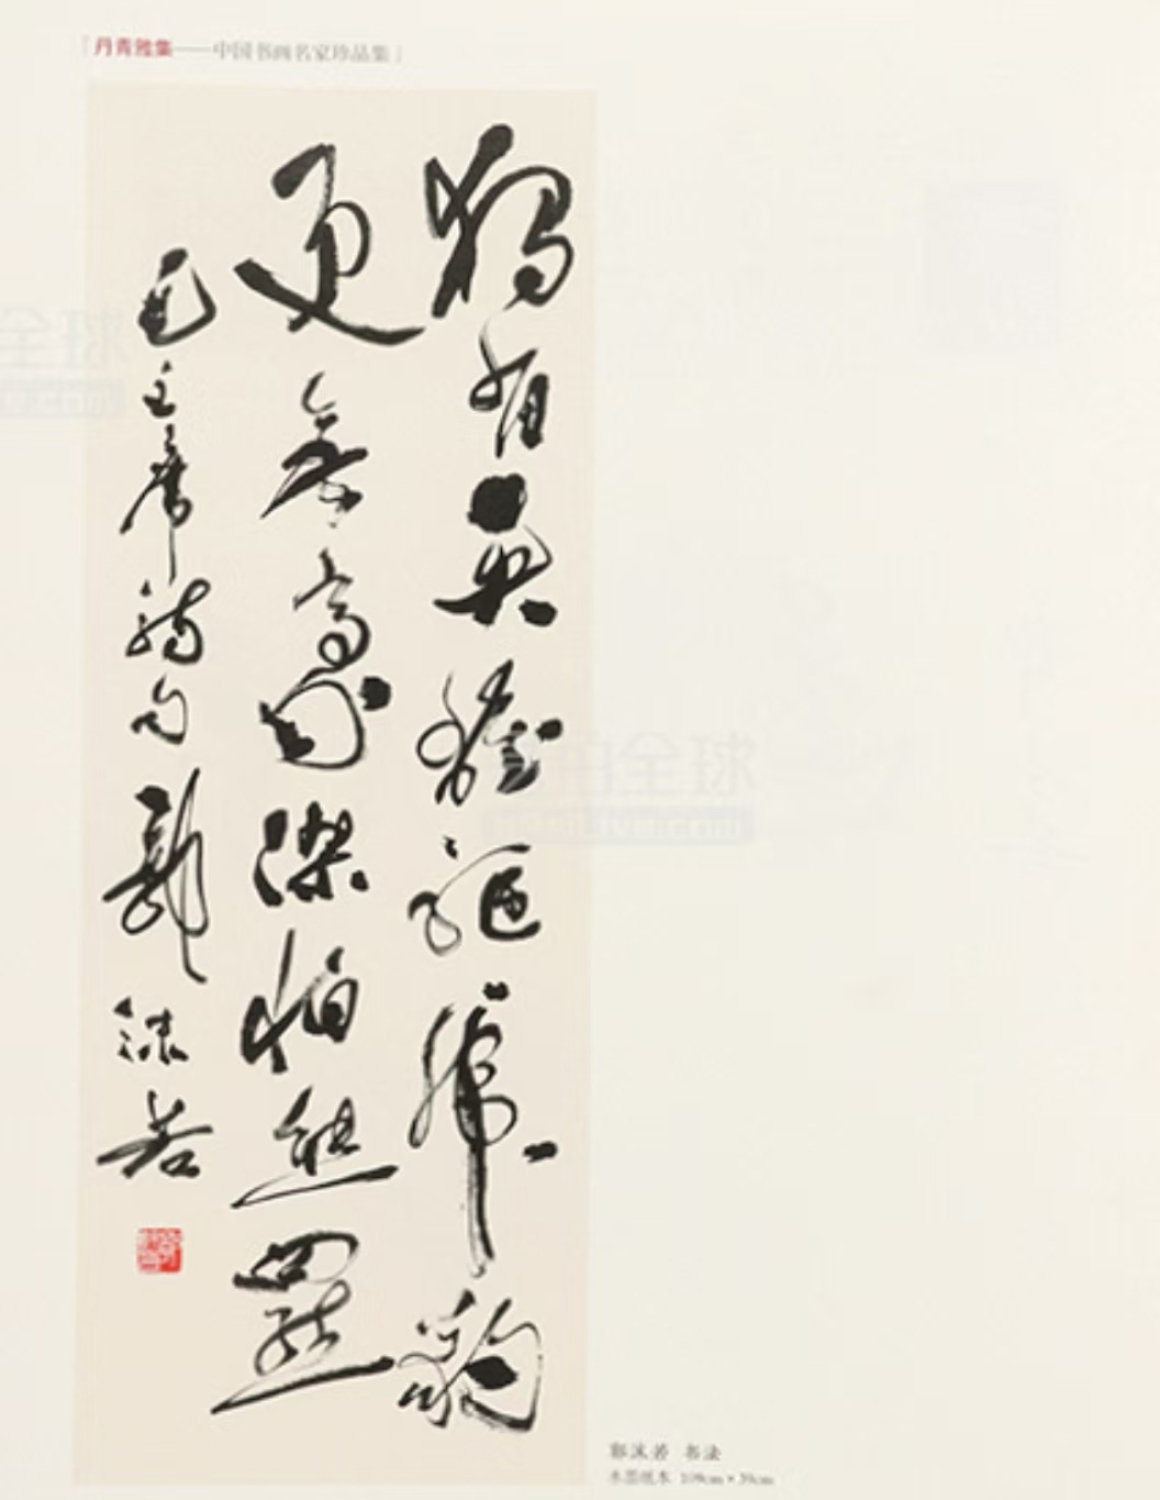 「丹青雅集——中国书画名家珍品集」
獨有英雄驅虎豹
更無豪傑怕熊羆
毛主席詩句 郭沫若
拍全球
郭沫若 书法
水墨纸本 109cm×39cm